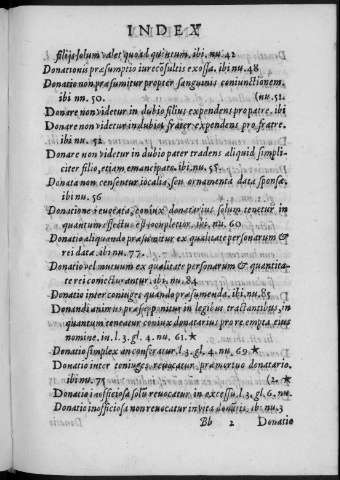 INDEX
filijs solum valet quo ad quintum. ibi. nu. 42
Donationis præsumptio iurecõsultis exossa. ibi nu. 48
Donatio non præsumitur propter sanguinis coniunctionem.
ibi nn. 50. (nu. 51.
Donare non videtur in dubio filius expendens pro patre. ibi
Donare non videtur in dubio frater expendens pro fratre.
ibi nu. 52
Donare non videtur in dubio pater tradens aliquid simpli-
citer filio, etiam emancipato. ibi. nu. 55.
Donata non censentur iocalia, seu ornamenta data sponsæ,
ibi nu. 56
Donatione reuocata, coniux donatarius solum tenetur in
quantum effectus est locupletior. ibi. nu. 60
Donatio aliquando præsumitur ex qualitate personarum &
rei data. ibi nu. 77.
Donatio vel muuum ex qualitate personarum & quantita-
te rei coniecturantur. ibi nu. 84
Donatio inter coniuges quando præsumenda. ibi nu. 85
Donandi animus præsupponitur in legibus tractantibus, in
quantum teneatur coniux donatarius pro re empta eius
nomine, in. l. 3. gl. 4. nu. 61. ★
Donatio simplex an conferatur. l. 3. gl. 4. nu. 69 ★
Donatio inter coniuges reuocatur præmortuo donatario.
ibi nu. 75 (2. ★
Donatio inofficiosa solũ reuocatur in excessu. l. 3. gl. 6. nu.
Donatio inofficiosa non reuocatur in vita donãtis. ibi nu. 3
Bb 2 Donatio